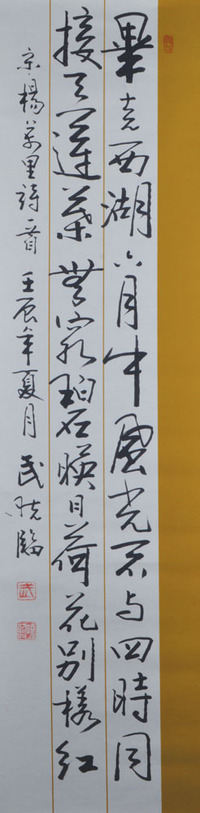 畢竟西湖六月中風光不与四時同
接天蓮葉無窮碧映日荷花別樣紅
宋楊萬里詩一首 壬辰年夏月 武 臨